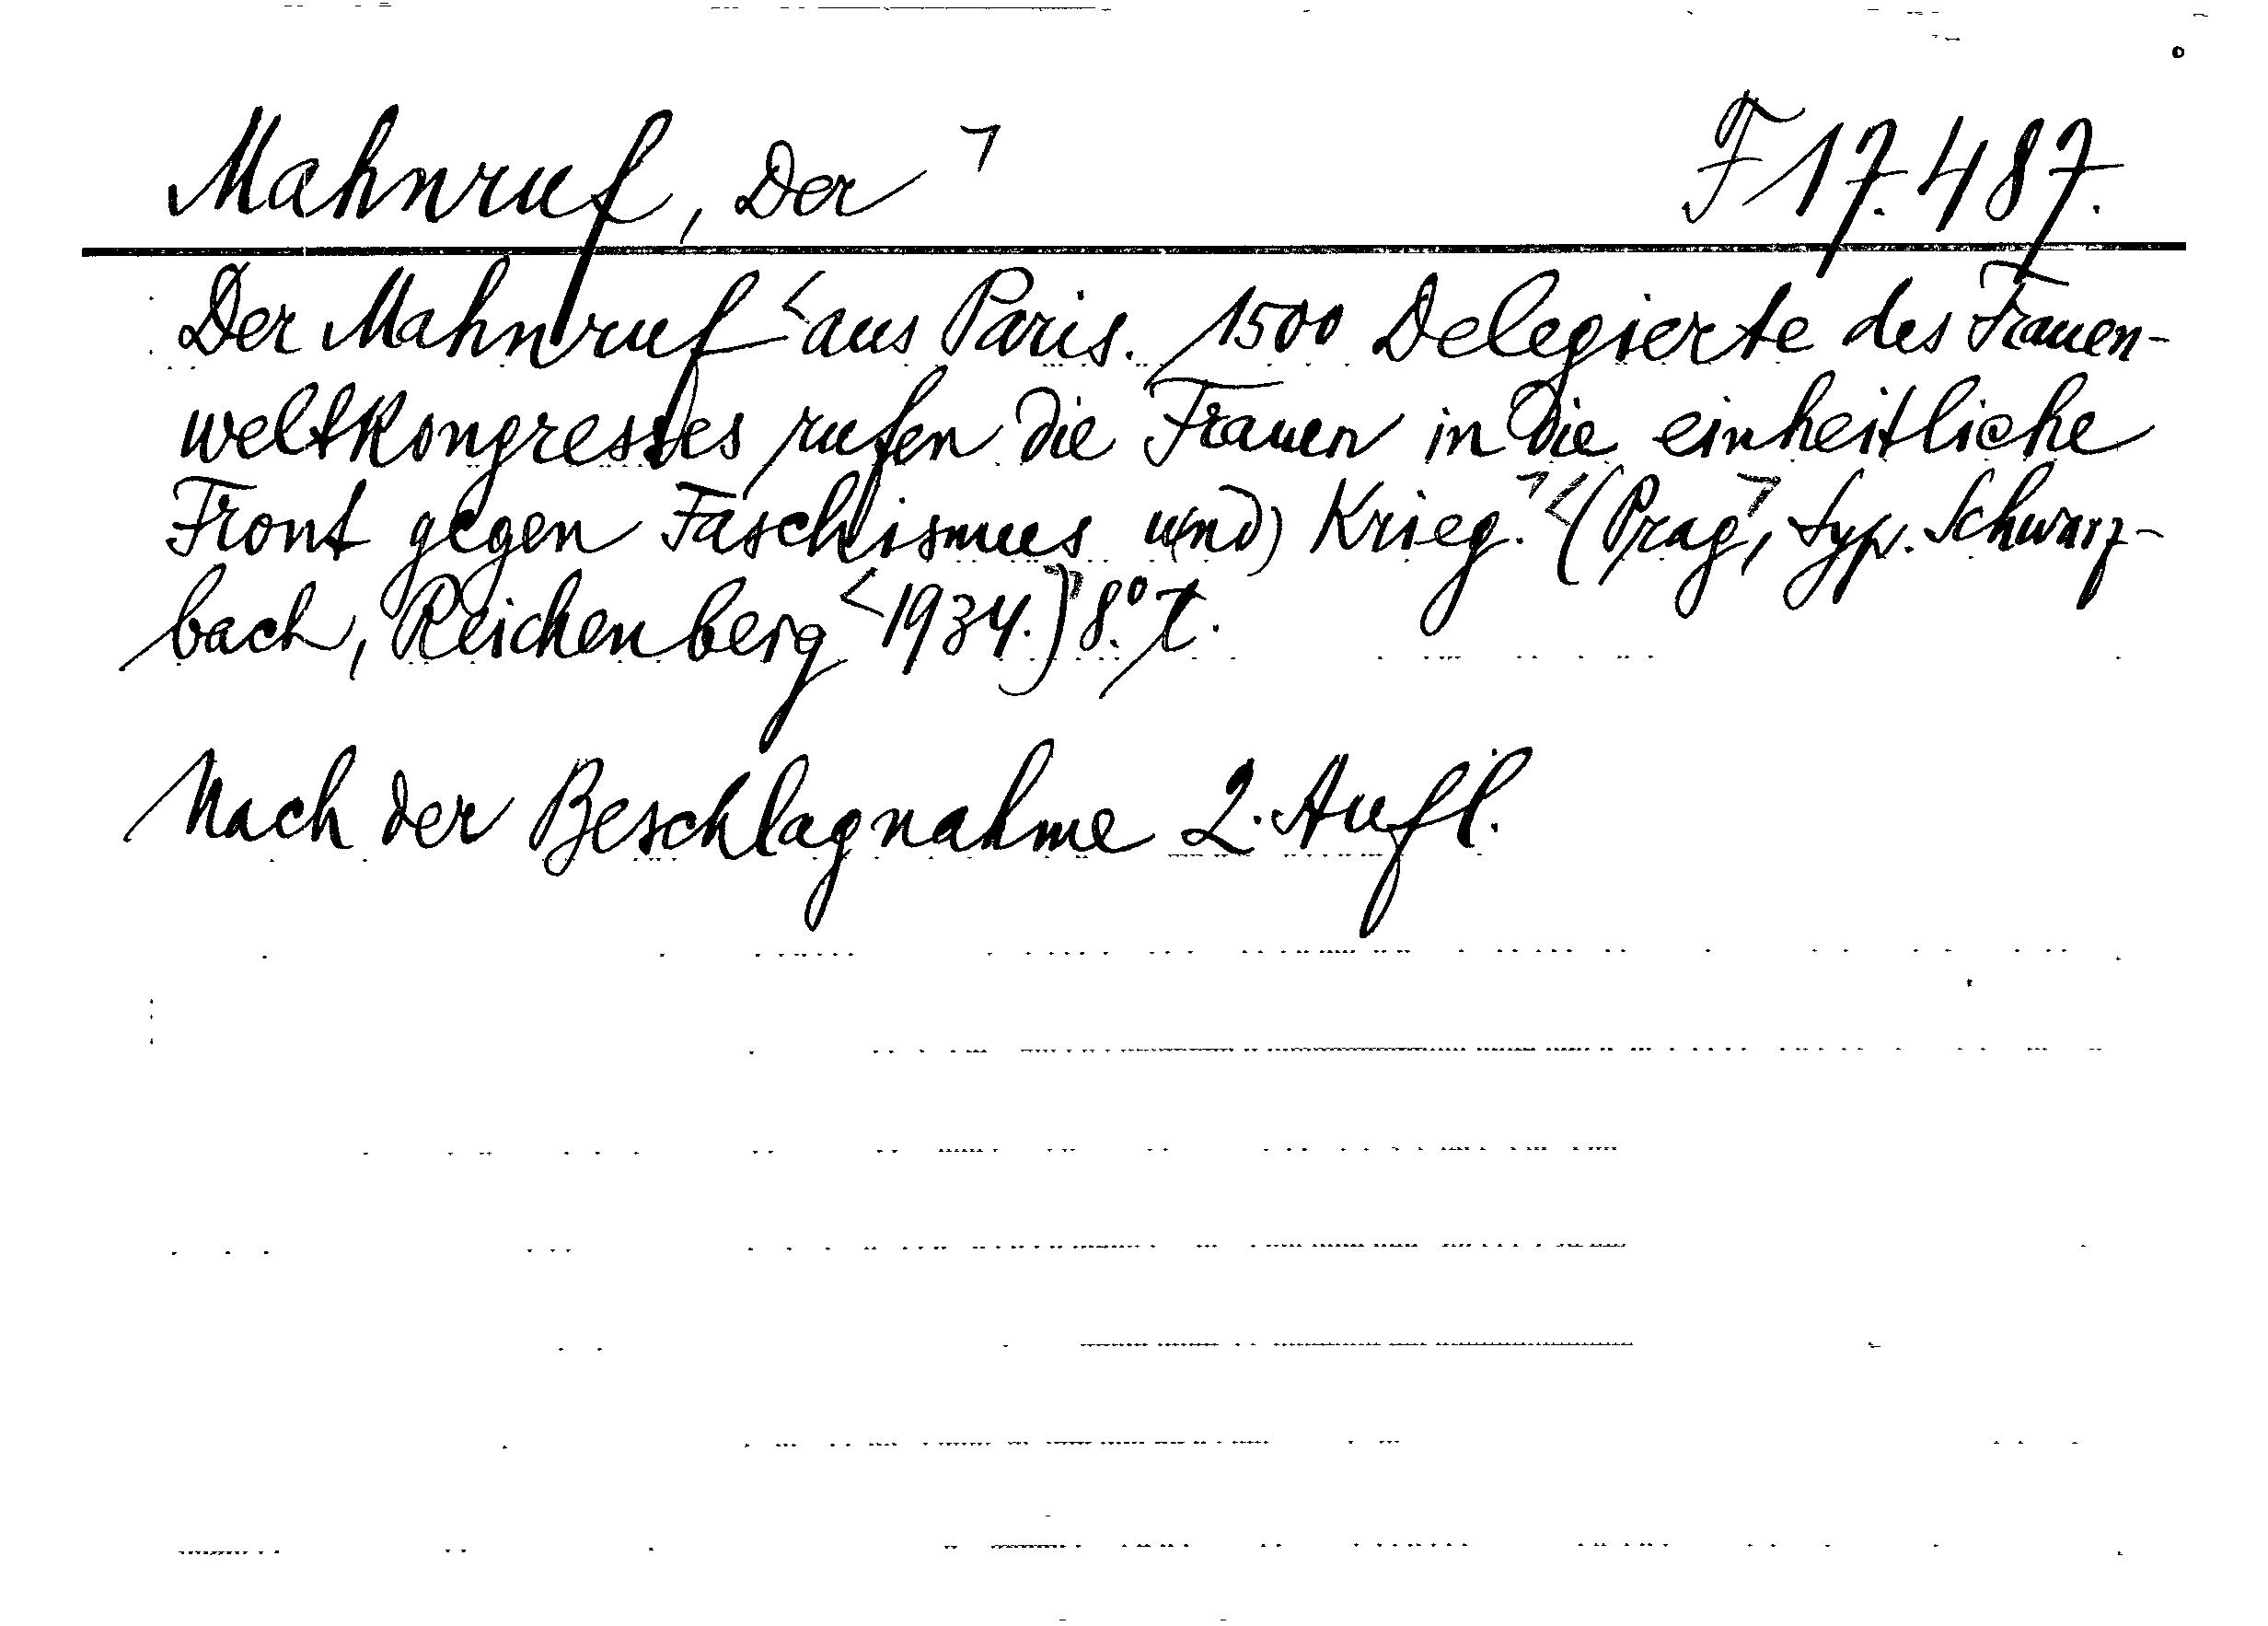 Mahnruf, Der ⌝ F 17.487.
Der Mahnruf <aus Paris. 1500 Delegierte des Frauen-
weltkongresses rufen die Frauen in die einheitliche
Front gegen Faschismus u(nd) Krieg.⌝ <(Prag⌝, Typ. Schwarz-
bach, Reichenberg <1934.)⌝ 8.° t.
Nach der Beschlagnahme 2. Aufl.